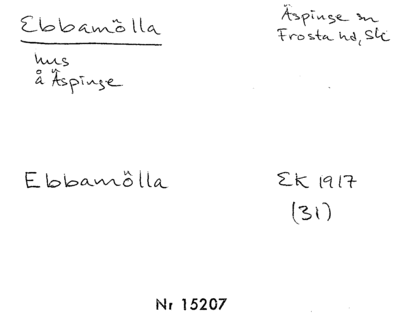 Ebbamölla
Äspinge sn
Frosta hd, Sk
hus
å Äspinge
Ebbamölla
EK 1917
(31)
Nr 15207